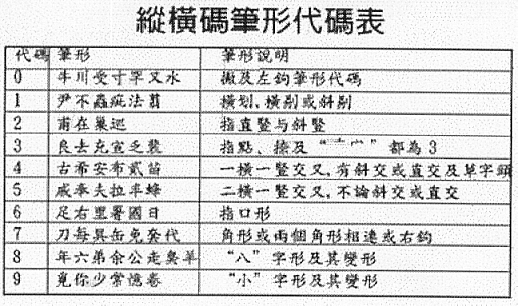 縱橫碼筆形代碼表
代碼 筆形 筆形說明
0 牛川受寸罕又水 撇及左鉤筆形代碼
1 尹不蟲疵法翦 橫划、橫剔或斜剔
2 甫在巢巡 指直豎与斜豎
3 良去充宣乏裝 指點、捺及“ ”都為3
4 古希安布貳苗 一橫一豎交叉,有斜交或直交及草字頭
5 戚奉夫拉丰蜂 二橫一豎交叉,不論斜交或直交
6 足右里署國日 指口形
7 刀每異缶免套代 角形或兩個角形相連或右鉤
8 年六弟余公走臭羊 “八”字形及其變形
9 覓你少常憶卷 “小”字形及其變形